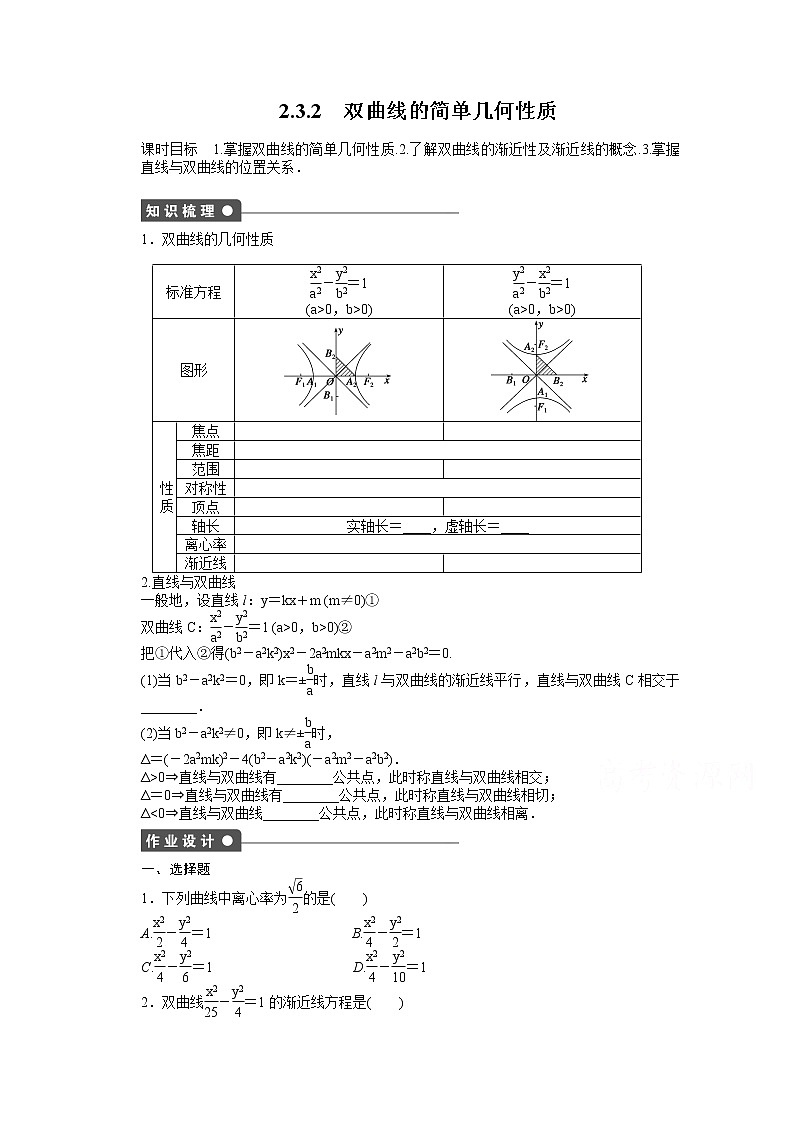 2.3.2 双曲线的简单几何性质
课时目标 1.掌握双曲线的简单几何性质.2.了解双曲线的渐近性及渐近线的概念.3.掌握
直线与双曲线的位置关系.
知识梳理
1.双曲线的几何性质
标准方程 x²/a²-y²/b²=1 (a>0,b>0) y²/a²-x²/b²=1 (a>0,b>0)
图形
y
B₂
F₁ A₁ O A₂ F₂ x
B₁
y
A₂ F₂
B₁ O B₂ x
A₁
F₁
性质
焦点
焦距
范围
对称性
顶点
轴长 实轴长=____,虚轴长=____
离心率
渐近线
2.直线与双曲线
一般地,设直线l:y=kx+m (m≠0)①
双曲线C:x²/a²-y²/b²=1 (a>0,b>0)②
把①代入②得(b²-a²k²)x²-2a²mkx-a²m²-a²b²=0.
(1)当b²-a²k²=0,即k=±b/a时,直线l与双曲线的渐近线平行,直线与双曲线C相交于
________.
(2)当b²-a²k²≠0,即k≠±b/a时,
Δ=(-2a²mk)²-4(b²-a²k²)(-a²m²-a²b²).
Δ>0⇒直线与双曲线有________公共点,此时称直线与双曲线相交;
Δ=0⇒直线与双曲线有________公共点,此时称直线与双曲线相切;
Δ<0⇒直线与双曲线________公共点,此时称直线与双曲线相离.
作业设计
一、选择题
1.下列曲线中离心率为√6/2的是( )
A.x²/2-y²/4=1 B.x²/4-y²/2=1
C.x²/4-y²/6=1 D.x²/4-y²/10=1
2.双曲线x²/25-y²/4=1的渐近线方程是( )